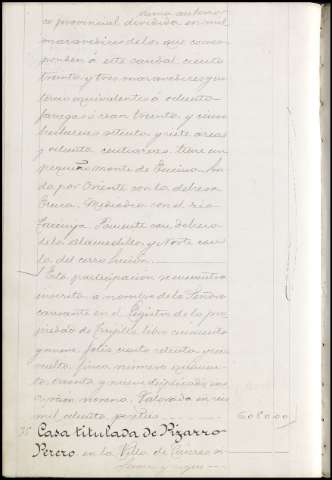 co provincial dividida en mil
maravedises de los que corres
ponden á este caudal ciento
treinta y tres maravedises que
tierno equivalentes á ochenta
fanegas ó sean treinta y cinco
hectareas setenta y siete areas
y ochenta centiareas, tiene un
pequeño monte de Encina, lin
da por Oriente con la dehesa
Mediodia con el rio
Poniente con dehesa
de la Alamedilla y Norte con
la del cerro
Esta participacion se encuentra
inscrita a nombre de la Señora
causante en el Registro de la pro
piedad de Trujillo libro cincuenta
y nueve, folio ciento setenta y
vuelto, finca numero
duplicado ins
cripcion novena. Valorada en seis
mil ochenta pesetas 6080.00
Casa titulada de Pizarro
Perero, en la Villa de